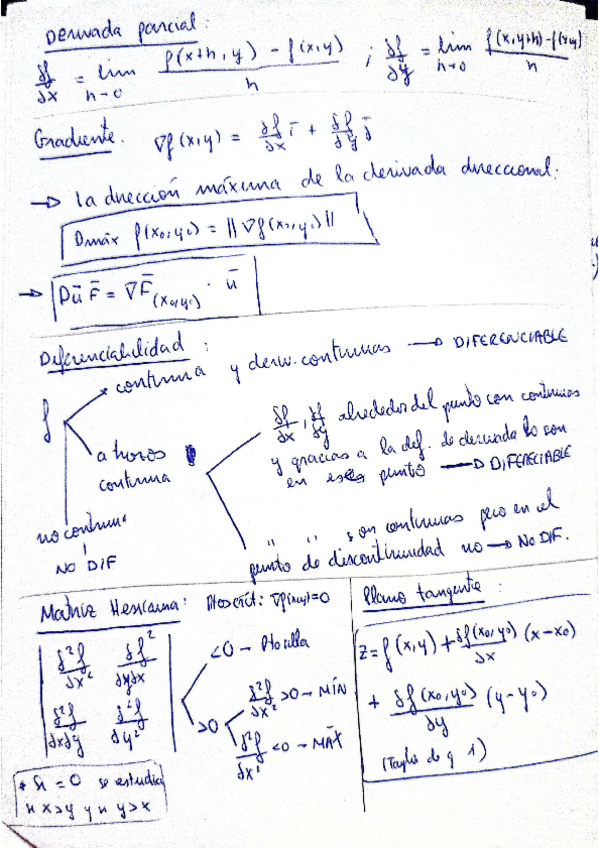 Derivada parcial:
∂f/∂x = lim h→0 (f(x+h, y) - f(x,y))/h ; ∂f/∂y = lim h→0 (f(x,y+h) - f(x,y))/h
Gradiente. ∇f(x,y) = ∂f/∂x i + ∂f/∂y j
→ la dirección máxima de la derivada direccional:
Dmáx f(x0,y0) = ||∇f(x0,y0)||
→ Dū F̄ = ∇F̄(x0,y0) · ū
Diferenciabilidad:
f
continua y deriv. continuas → DIFERENCIABLE
a trozos
continua
∂f/∂x, ∂f/∂y alrededor del punto con continuas
y gracias a la def. de derivada lo son
en ese punto → DIFERECIABLE
no continua
NO DIF
" " son continuas pero en el
punto de discontinuidad no → NO DIF.
Matriz Hessiana: Ptoscrít: ∇f(x,y)=0
∂²f/∂x² ∂f²/∂y∂x
∂²f/∂x∂y ∂²f/∂y²
<0 - Pto silla
>0
∂²f/∂x² >0 - MÍN
∂²f/∂x² <0 - MÁX
* Si = 0 se estudia
n x>y y n y>x
Plano tangente:
z = f(x,y) + ∂f(x0,y0)/∂x (x-x0)
+ ∂f(x0,y0)/∂y (y-y0)
(Taylor de g 1)